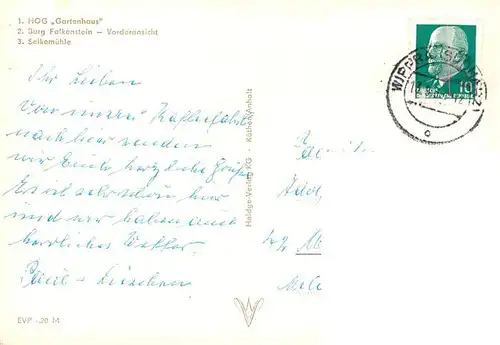 1. HOG „Gartenhaus"
2. Burg Falkenstein – Vorderansicht
3. Selkemühle
Ihr Lieben
Von unserer Kaffeefahrt
nach hier senden
wir Euch herzliche Grüße
Es ist sehr schön hier
und wir haben auch
herrliches Wetter.
Paul – Lieschen
EVP -.20 M
Haldge-Verlag KG · Köthen/Anhalt
10
WIPPRA (SÜDHARZ)
Familie